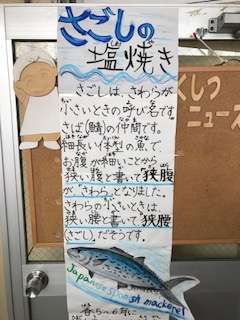 さごしの
塩焼き
さごしは、さわらが
小さいときの呼び名です。
さば(鯖)の仲間です。
細長い体型の魚で
お腹が細いことから
狭い腹と書いて狭腹
が「さわら」となりました。
さわらの小さいときは
狭い腰と書いて狭腰
(さごし)だそうです。
Japanese Spanish mackerel
くしつ
ニュース